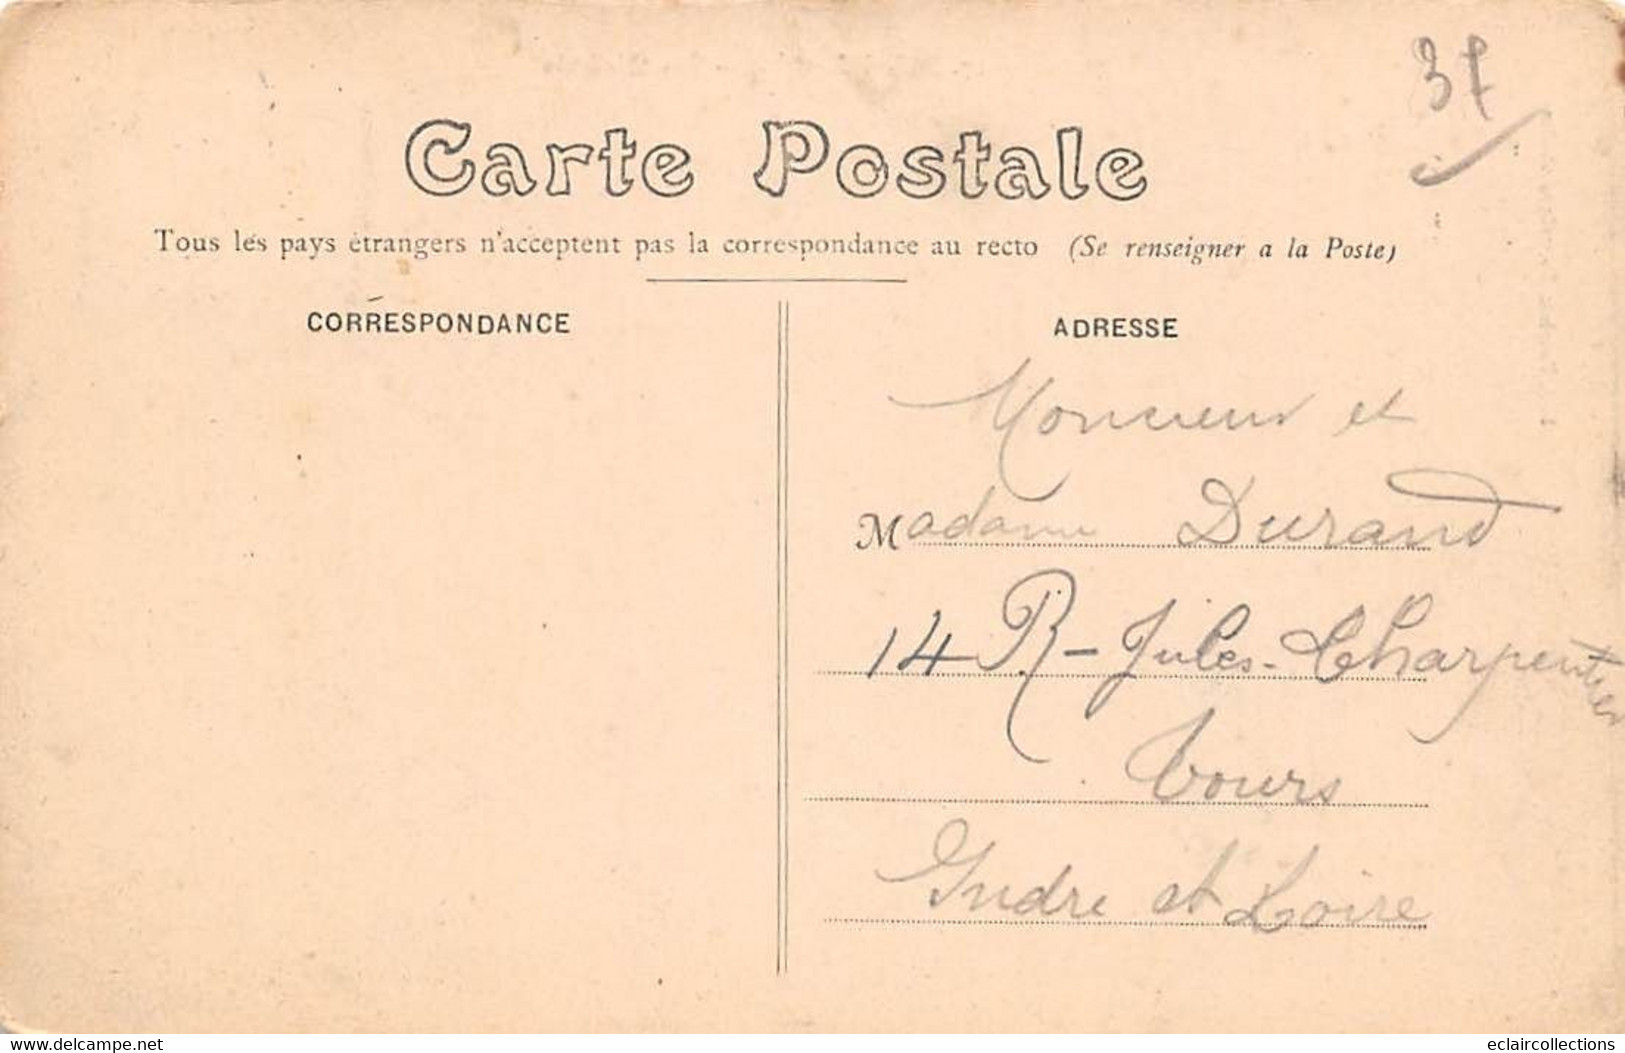 37
Carte Postale
Tous les pays étrangers n'acceptent pas la correspondance au recto (Se renseigner a la Poste)
CORRESPONDANCE
ADRESSE
Monsieur et
Madame Durand
14 R- Jules-Charpentier
Tours
Indre et Loire
www.delcampe.net
eclaircollections